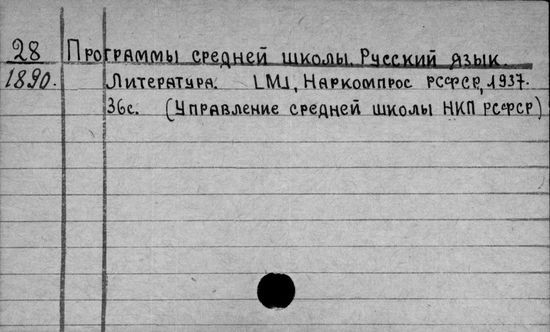 28 Программы средней школы. Русский язык.
1890. Литература. [М], Наркомпрос РСФСР, 1937.
36с. (Управление средней школы НКП РСФСР)